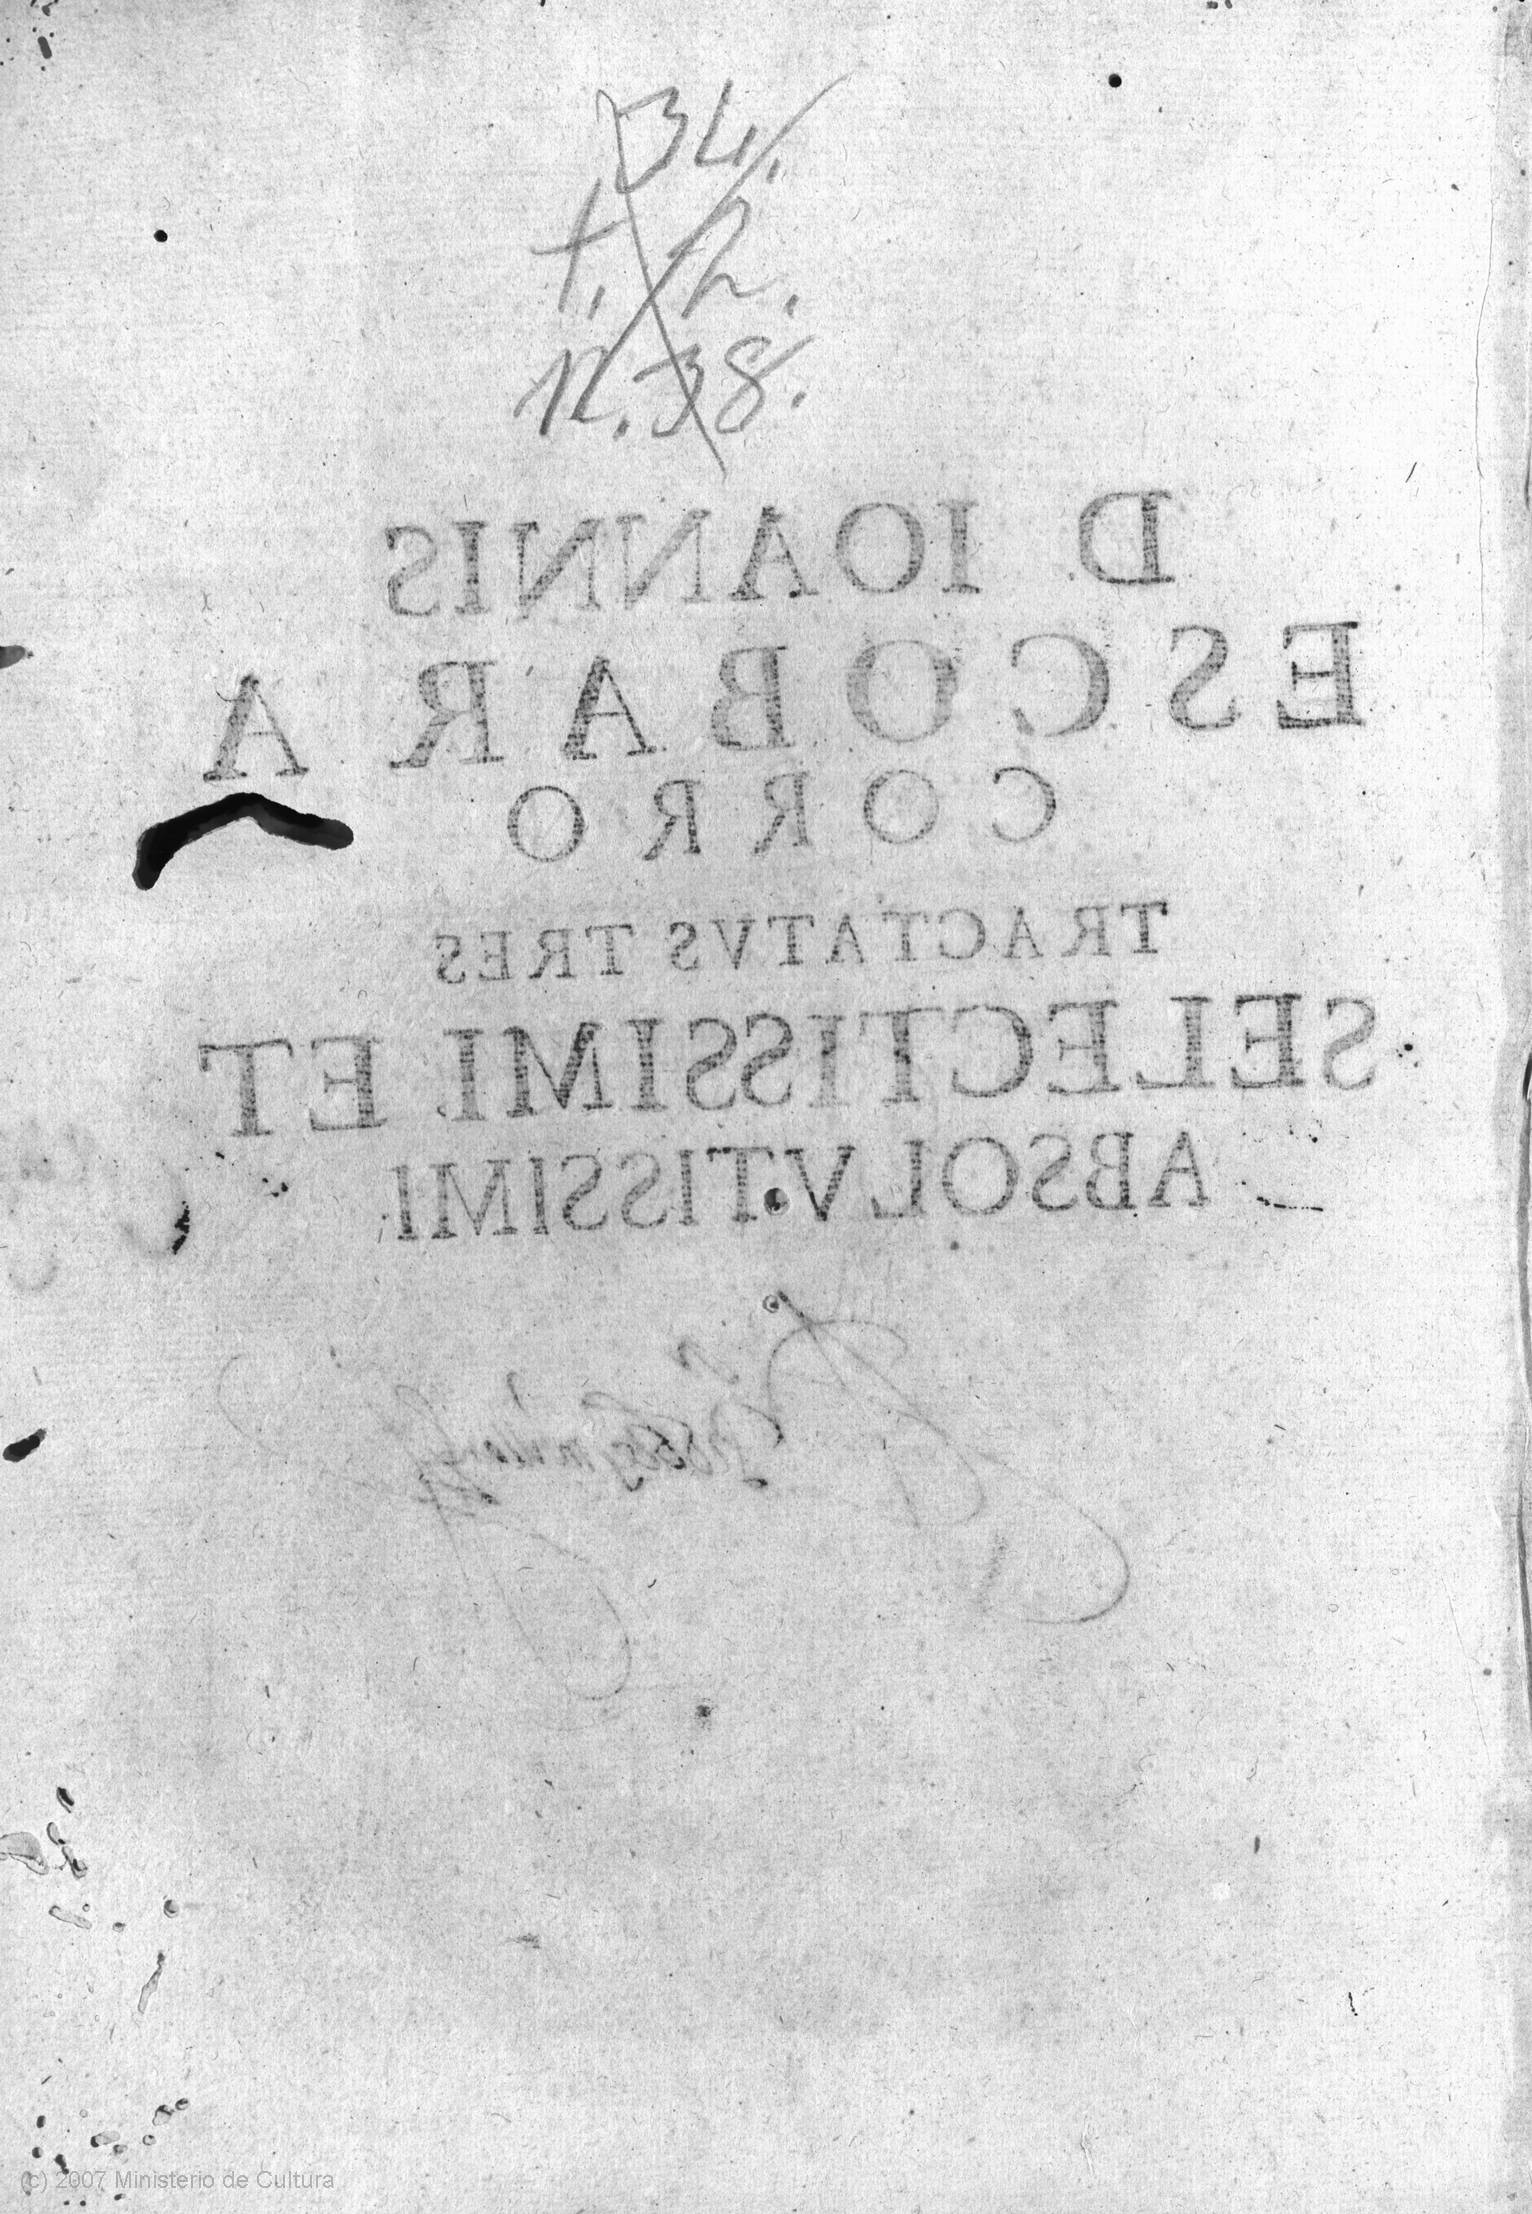 34.
t. 2.
n. 38.
D IOANNIS
ESCOBAR A
CORRO
TRACTATVS TRES
SELECTISSIMI, ET
ABSOLVTISSIMI
(c) 2007 Ministerio de Cultura